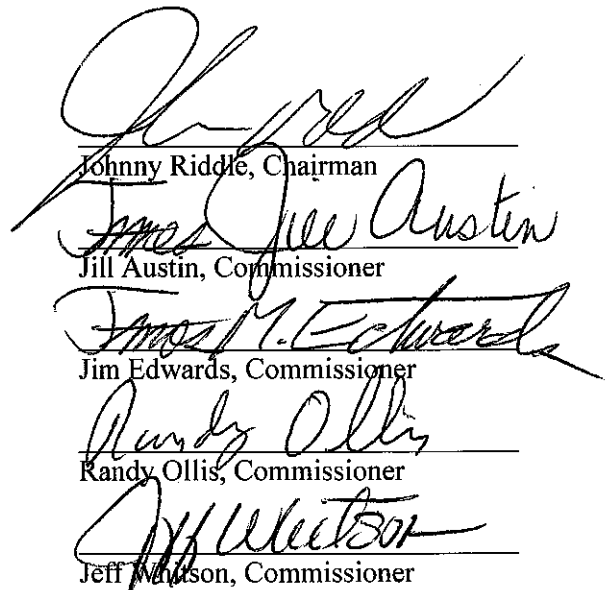 Johnny Riddle, Chairman
James Jill Austin
Jill Austin, Commissioner
James M. Edwards
Jim Edwards, Commissioner
Randy Ollis
Randy Ollis, Commissioner
Jeff Whitson
Jeff Whitson, Commissioner